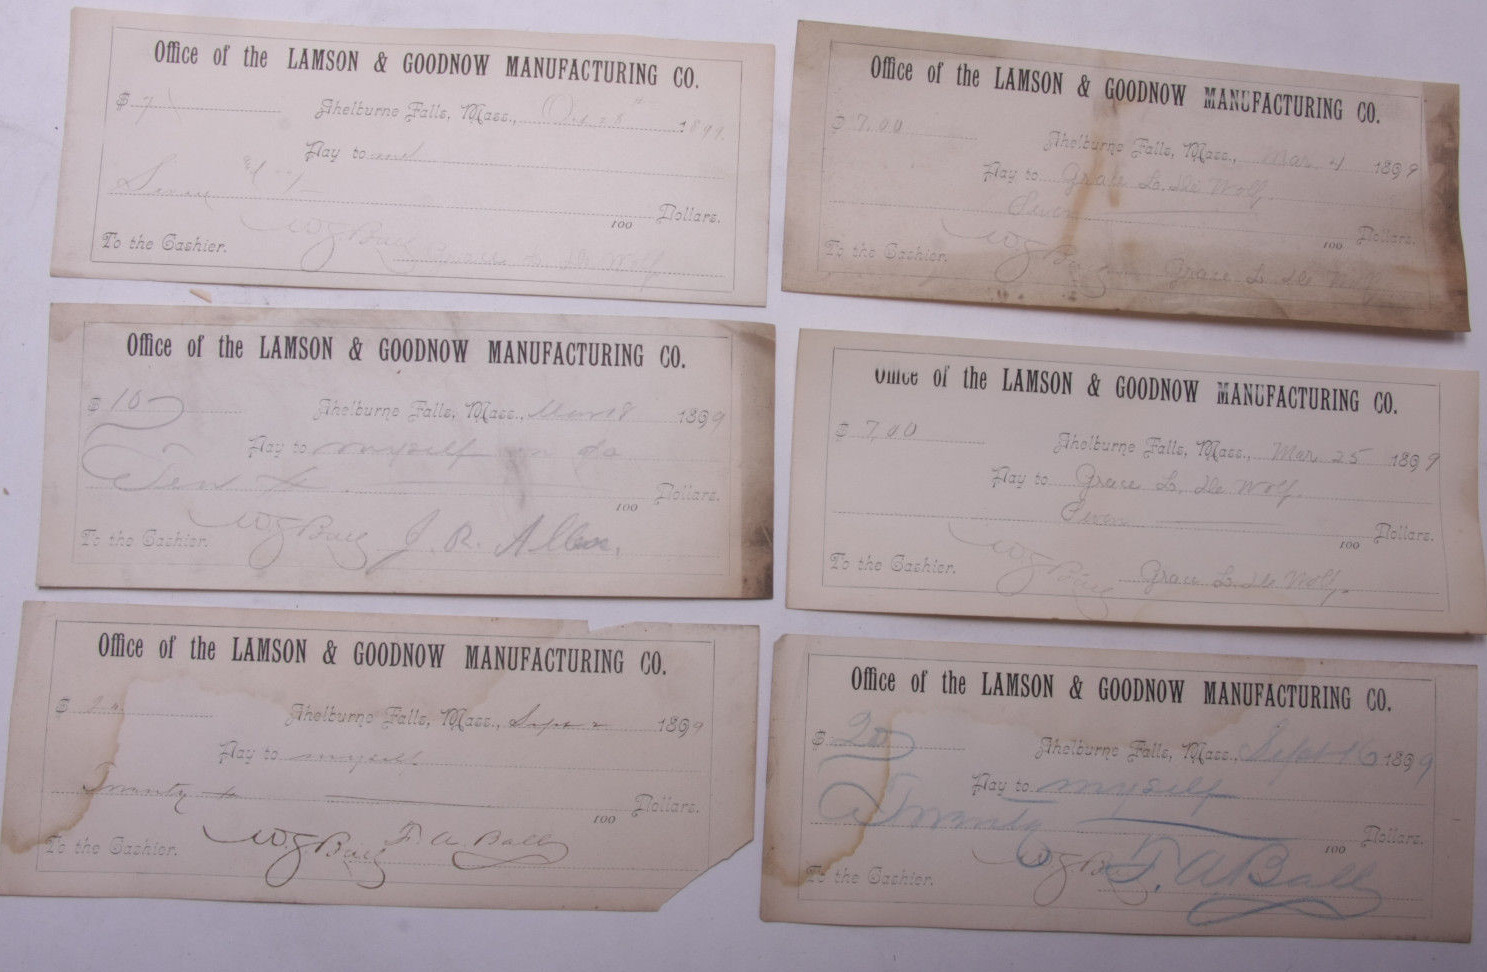 Office of the LAMSON & GOODNOW MANUFACTURING CO.
$ 7 Shelburne Falls, Mass., 189
Pay to
100 Dollars.
To the Cashier. De Wolf
Office of the LAMSON & GOODNOW MANUFACTURING CO.
$ 7.00 Shelburne Falls, Mass., Mar. 4 1899
Pay to Grace L. De Wolf
Seven
100 Dollars.
To the Cashier. Grace L. De Wolf
Office of the LAMSON & GOODNOW MANUFACTURING CO.
$ 10 Shelburne Falls, Mass., 18 1899
Pay to myself
Ten
100 Dollars.
To the Cashier. J. R.
Office of the LAMSON & GOODNOW MANUFACTURING CO.
$ 7.00 Shelburne Falls, Mass., Mar. 25 1899
Pay to Grace L. De Wolf.
Seven
100 Dollars.
To the Cashier. Grace L. De Wolf.
Office of the LAMSON & GOODNOW MANUFACTURING CO.
$ Shelburne Falls, Mass., Sept 2 1899
Pay to myself.
Twenty
100 Dollars.
To the Cashier. F. A. Ball
Office of the LAMSON & GOODNOW MANUFACTURING CO.
$ 20 Shelburne Falls, Mass., Sept 16 1899
Pay to myself
Twenty
100 Dollars.
To the Cashier. F. A. Ball